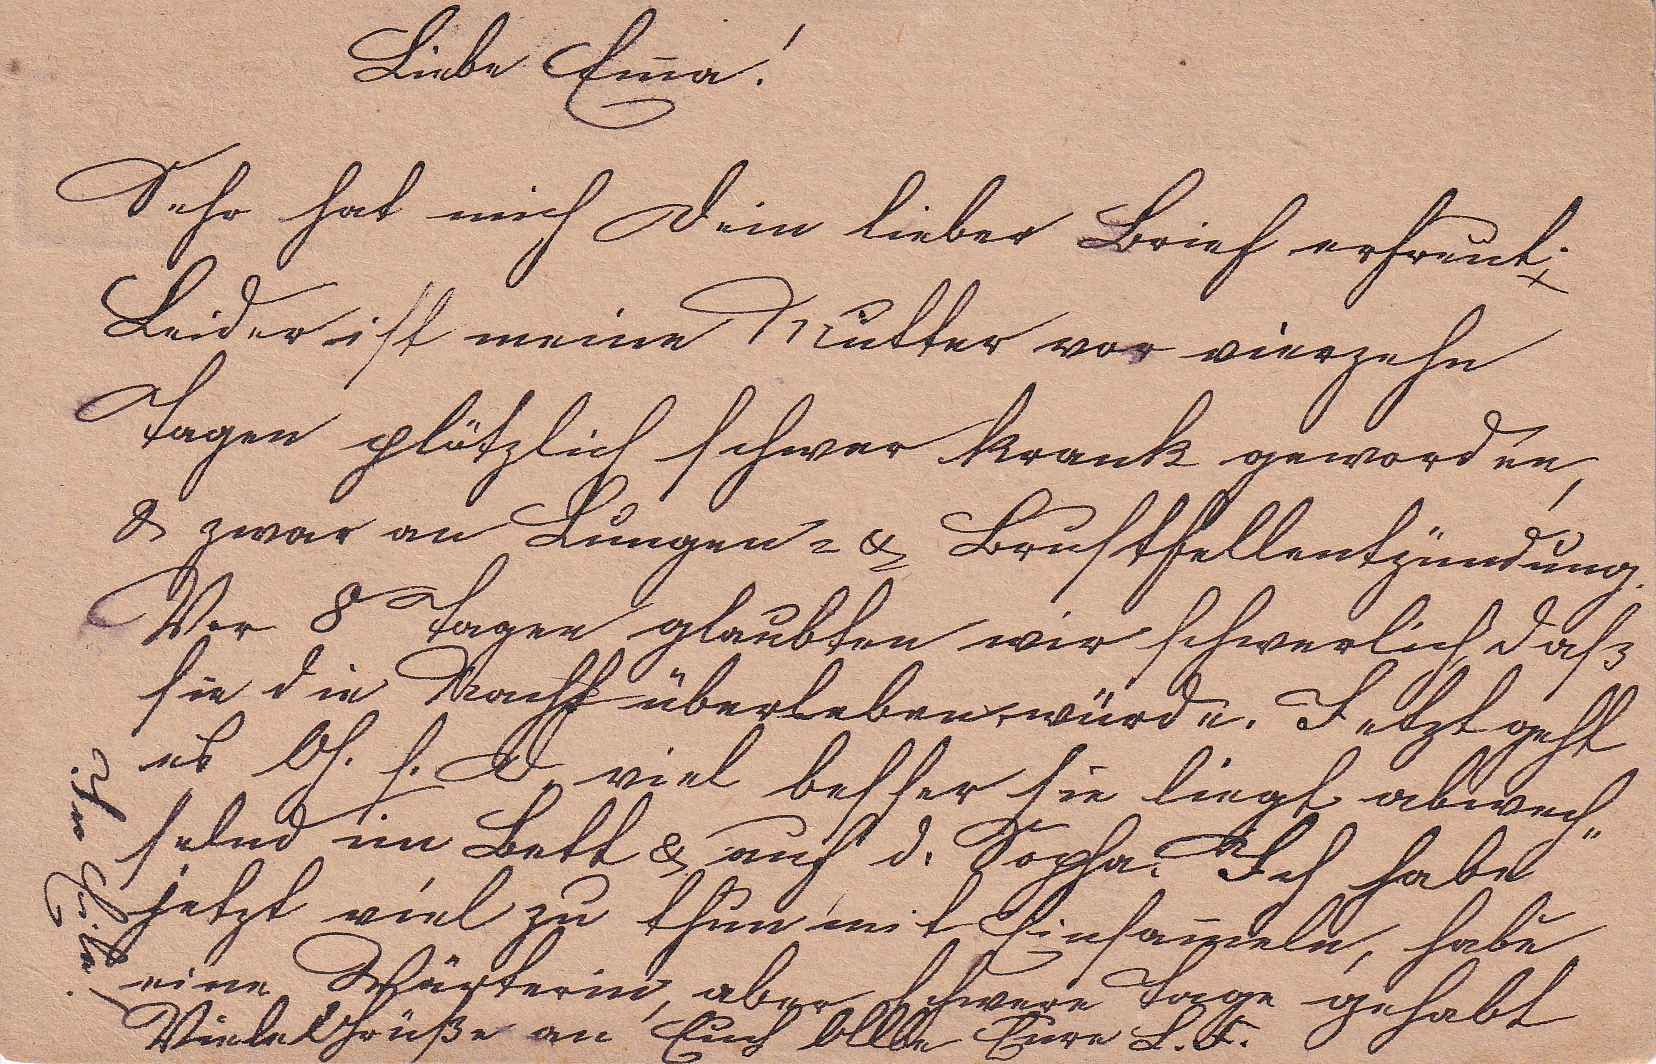 Liebe Em̄a!
Sehr hat mich Dein lieber Brief erfreut.
Leider ist meine Mutter vor vierzehn
Tagen plötzlich schwer krank geworden,
& zwar an Lungen- & Brustfellentzündung.
Vor 8 Tagen glaubten wir schwerlich, daß
sie die Nacht überleben würde. Jetzt geht
es G. s. D. viel besser sie liegt abwech-
selnd im Bett & auf d. Sopha. Ich habe
jetzt viel zu thun mit Einsam̄eln, habe
eine Wärterin, aber schwere Tage gehabt
Viele Grüße an Euch Alle Eure L. F.